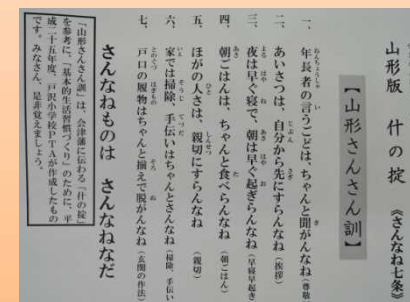 山形版　什の掟　《さんなね七条》
【山形さんさん訓】
一、年長者の言うごどは、ちゃんと聞がんなね（尊敬）
二、あいさつは、自分から先にすらんなね（挨拶）
三、夜は早ぐ寝で、朝は早ぐ起ぎらんなね（早寝早起き）
四、朝ごはんは、ちゃんと食べらんなね（朝ごはん）
五、ほがの人さは、親切にすらんなね（親切）
六、家では掃除、手伝いはちゃんとさんなね（掃除、手伝い）
七、戸口の履物はちゃんと揃えで脱がんなね（玄関の作法）
さんなねものは　さんなねなだ
「山形さんさん訓」は、会津藩に伝わる「什の掟」
を参考に、「基本的生活習慣づくり」のために、平
成二十五年度、戸沢小学校ＰＴＡが作成したもの
です。みなさん、是非覚えましょう。